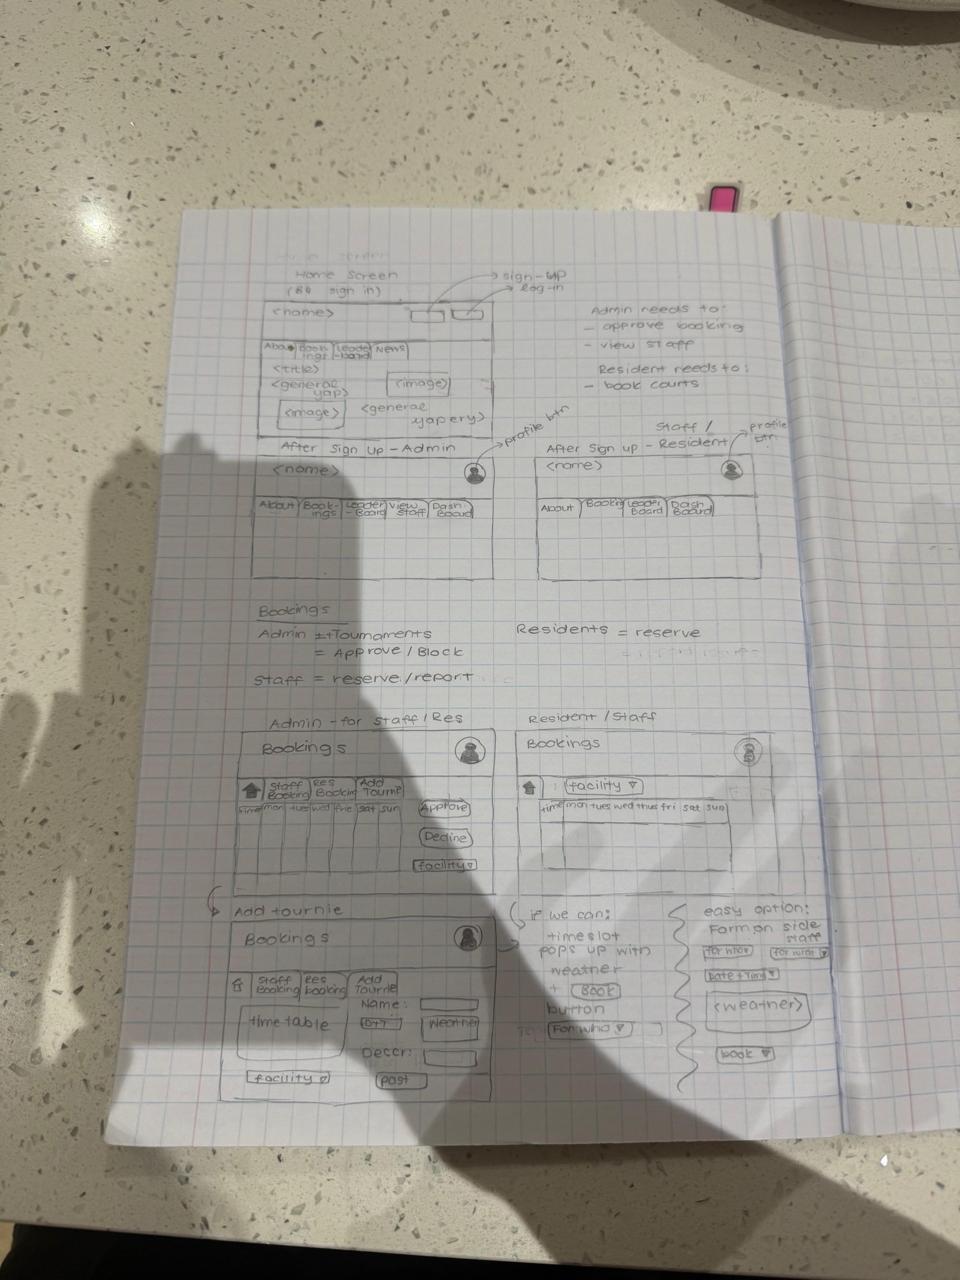 Home Screen
(B4 sign in)
sign-up
log-in
<name>
About
Book
ings
Leader
-board
News
<title>
<general
yap>
<image>
<image>
<general
yapery>
Admin needs to:
- approve booking
- view staff
Resident needs to:
- book courts
After Sign up - Admin
profile btn
<name>
About
Book-
ings
Leader
-Board
View
Staff
Dash
Board
Staff /
After sign up - Resident
profile
btn
<name>
About
Booking
Leader
Board
Dash
Board
Bookings
Admin ++Tournaments
= Approve / Block
Staff = reserve / report
Residents = reserve
Admin - for staff / Res
Bookings
Staff
Booking
Res
Bookin
Add
Tourne
time mon tues wed fri sat sun
Approve
Decline
facility
Resident / Staff
Bookings
: facility
time mon tues wed thus fri sat sun
Add tournie
Bookings
Staff
Booking
Res
booking
Add
Tourne
time table
Name:
D+T
Weather
Descr:
facility
past
if we can:
timeslot
pops up with
weather
+ Book
button
For who
easy option:
Form on side
staff
for who
Date + Time
<weather>
book